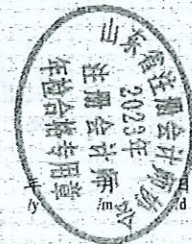 山东省注册会计师协会
2023年
注册会计师
年检合格专用章
年
月
/m
日
/d